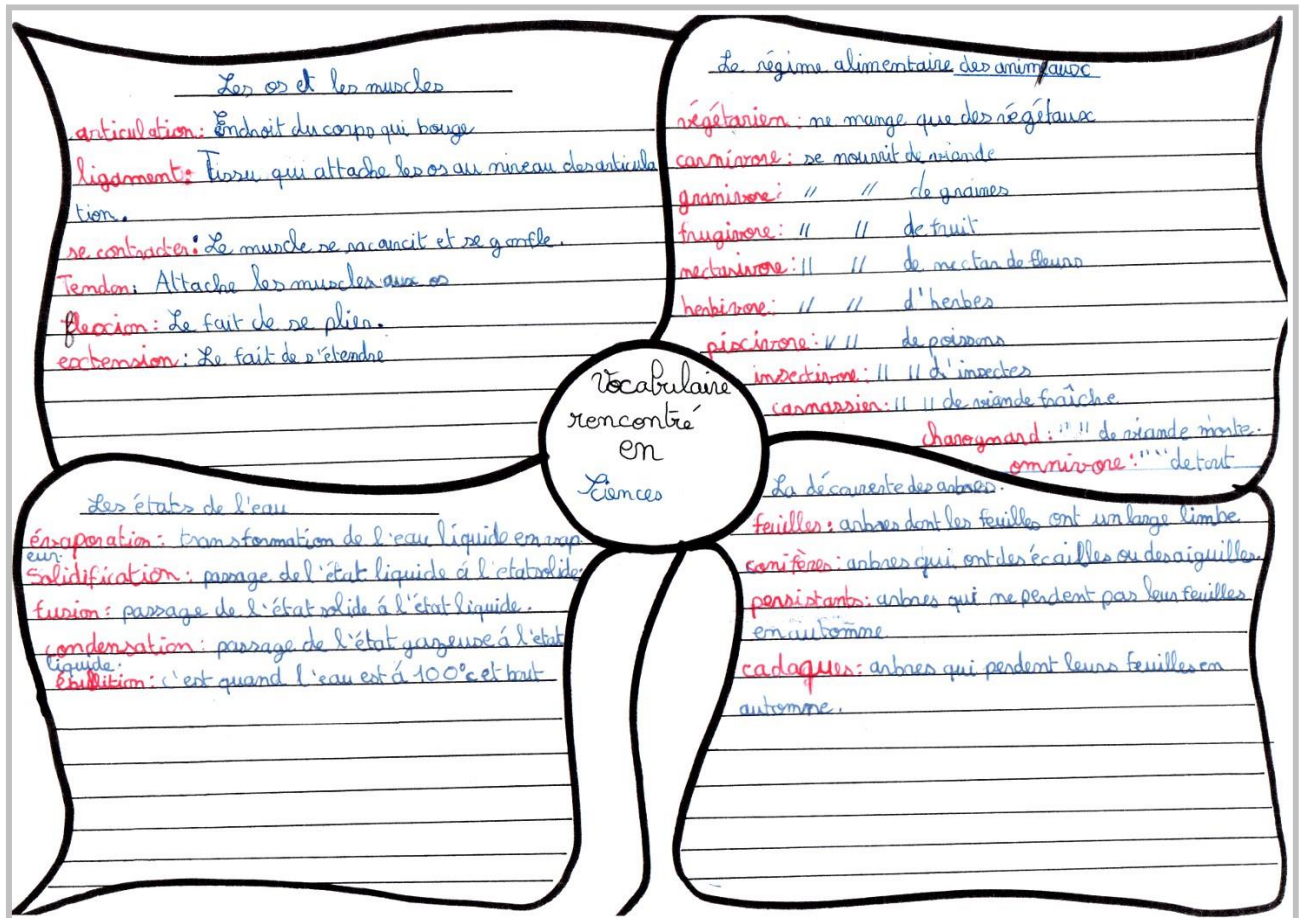 Les os et les muscles
articulation: Endroit du corps qui bouge
ligament: Tissu qui attache les os au niveau des articula
tion.
se contracter: Le muscle se racourcit et se gonfle.
Tendon: Attache les muscles aux os
flexion: Le fait de se plier.
extension: Le fait de s'étendre
Le régime alimentaire des animaux
végétarien: ne mange que des végétaux
carnivore: se nourrit de viande
granivore: " " de graines
frugivore: " " de fruit
nectarivore: " " de nectar de fleurs
herbivore: " " d'herbes
piscivore: " " de poissons
insectivore: " " d'insectes
carnassier: " " de viande fraîche
charognard: " " de viande morte.
omnivore: " " de tout
Vocabulaire
rencontré
en
Sciences
Les états de l'eau
évaporation: transformation de l'eau liquide en vap
eur.
Solidification: passage de l'état liquide á l'etat solide.
fusion: passage de l'état solide á l'état liquide.
condensation: passage de l'état gazeuse á l'état
liquide.
ébullition: c'est quand l'eau est á 100°c et bout
La découverte des arbres.
feuilles: arbres dont les feuilles ont un large limbe
conifères: arbres qui ont des écailles ou des aiguilles.
persistants: arbres qui ne perdent pas leur feuilles
en automne
cadaques: arbres qui perdent leurs feuilles en
automne.